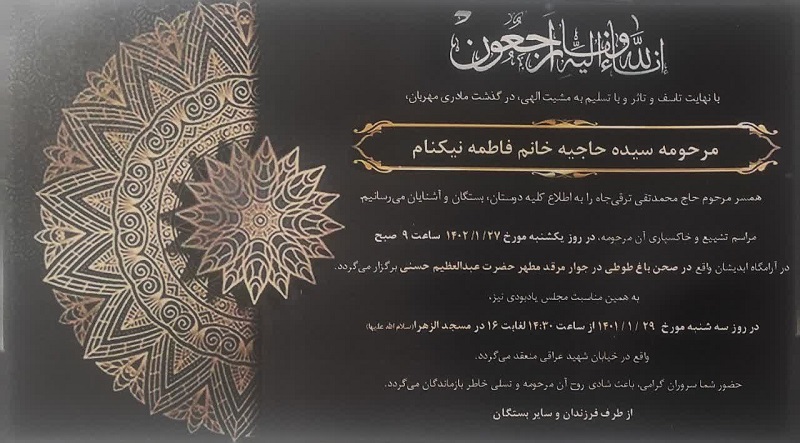 إنا لله وإنا إليه راجعون
با نهایت تاسف و تاثر و با تسلیم به مشیت الهی، در گذشت مادری مهربان،
مرحومه سیده حاجیه خانم فاطمه نیکنام
همسر مرحوم حاج محمدتقی ترقی‌جاه را به اطلاع کلیه دوستان، بستگان و آشنایان می‌رسانیم.
مراسم تشییع و خاکسپاری آن مرحومه، در روز یکشنبه مورخ ۲۷ /۱ /۱۴۰۲ ساعت ۹ صبح
در آرامگاه ابدیشان واقع در صحن باغ طوطی در جوار مرقد مطهر حضرت عبدالعظیم حسنی برگزار می‌گردد.
به همین مناسبت مجلس یادبودی نیز،
در روز سه شنبه مورخ ۲۹ /۱ /۱۴۰۱ از ساعت ۱۴:۳۰ لغایت ۱۶ در مسجد الزهرا (سلام الله علیها)
واقع در خیابان شهید عراقی منعقد می‌گردد.
حضور شما سروران گرامی، باعث شادی روح آن مرحومه و تسلی خاطر بازماندگان می‌گردد.
از طرف فرزندان و سایر بستگان